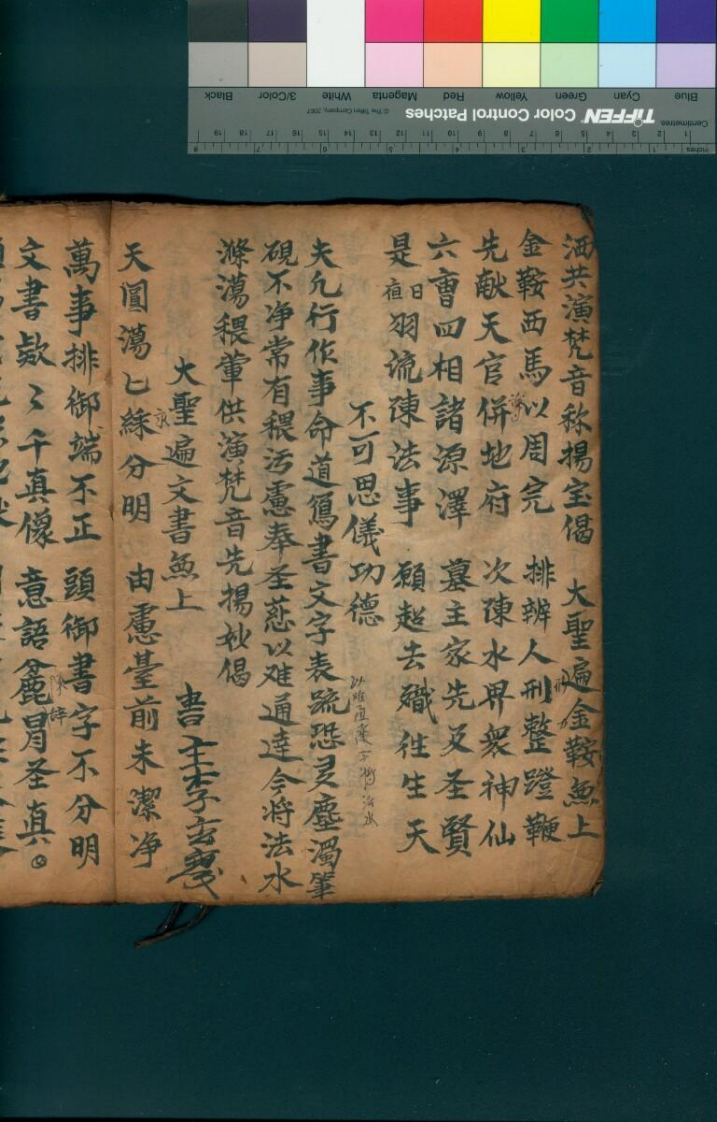 洒共演梵音称揚宝偈 大聖遍金鞍無上
金鞍西馬以周完 排辨人刑整蹬鞭
先献天官併地府 次陳水界衆神仙
六曹四相諸源澤 墓主家先及圣賢
是日宿羽流陳法事 願超去職往生天
不可思儀功德
夫凡行作事命道鴛書文字表疏恐灵塵濁筆
硯不净常有穢污慮奉圣慈以难通達今将法水
滌蕩穢葷供演梵音先揚妙偈
大聖遍文書無上
書主李玄慶
天圓蕩匕綵分明 由慮臺前未潔净
萬事排御端不正 頭御書字不分明
文書欵〻千真像 意語麁冐圣真
Inches
Centimetres
TIFFEN Color Control Patches
© The Tiffen Company, 2007
Blue
Cyan
Green
Yellow
Red
Magenta
White
3/Color
Black